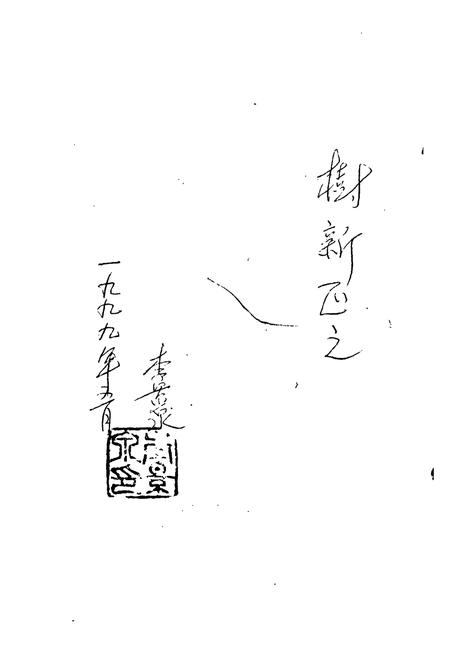 樹新正之
李景泉
一九九九年五月